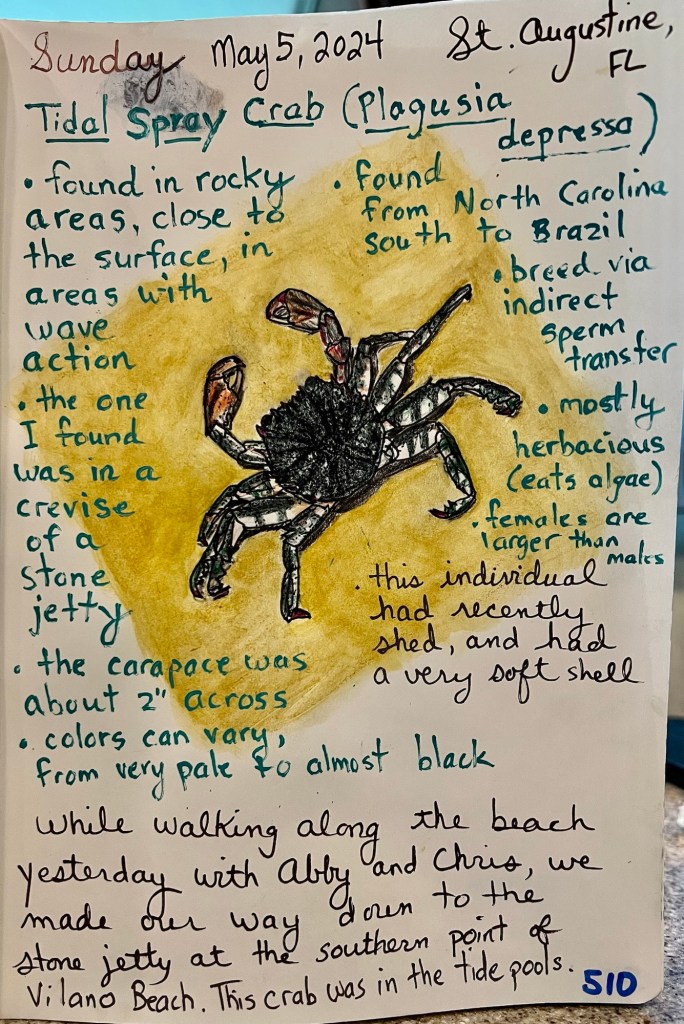 Sunday May 5, 2024 St. Augustine,
FL
Tidal Spray Crab (Plagusia
depressa)
• found in rocky
areas, close to
the surface, in
areas with
wave
action
• the one
I found
was in a
crevise
of a
stone
jetty
• the carapace was
about 2" across
• colors can vary,
from very pale to almost black
• found
from North Carolina
south to Brazil
• breed via
indirect
sperm
transfer
• mostly
herbacious
(eats algae)
• females are
larger than
males
• this individual
had recently
shed, and had
a very soft shell
While walking along the beach
yesterday with Abby and Chris, we
made our way down to the
stone jetty at the southern point of
Vilano Beach. This crab was in the tide pools.
510